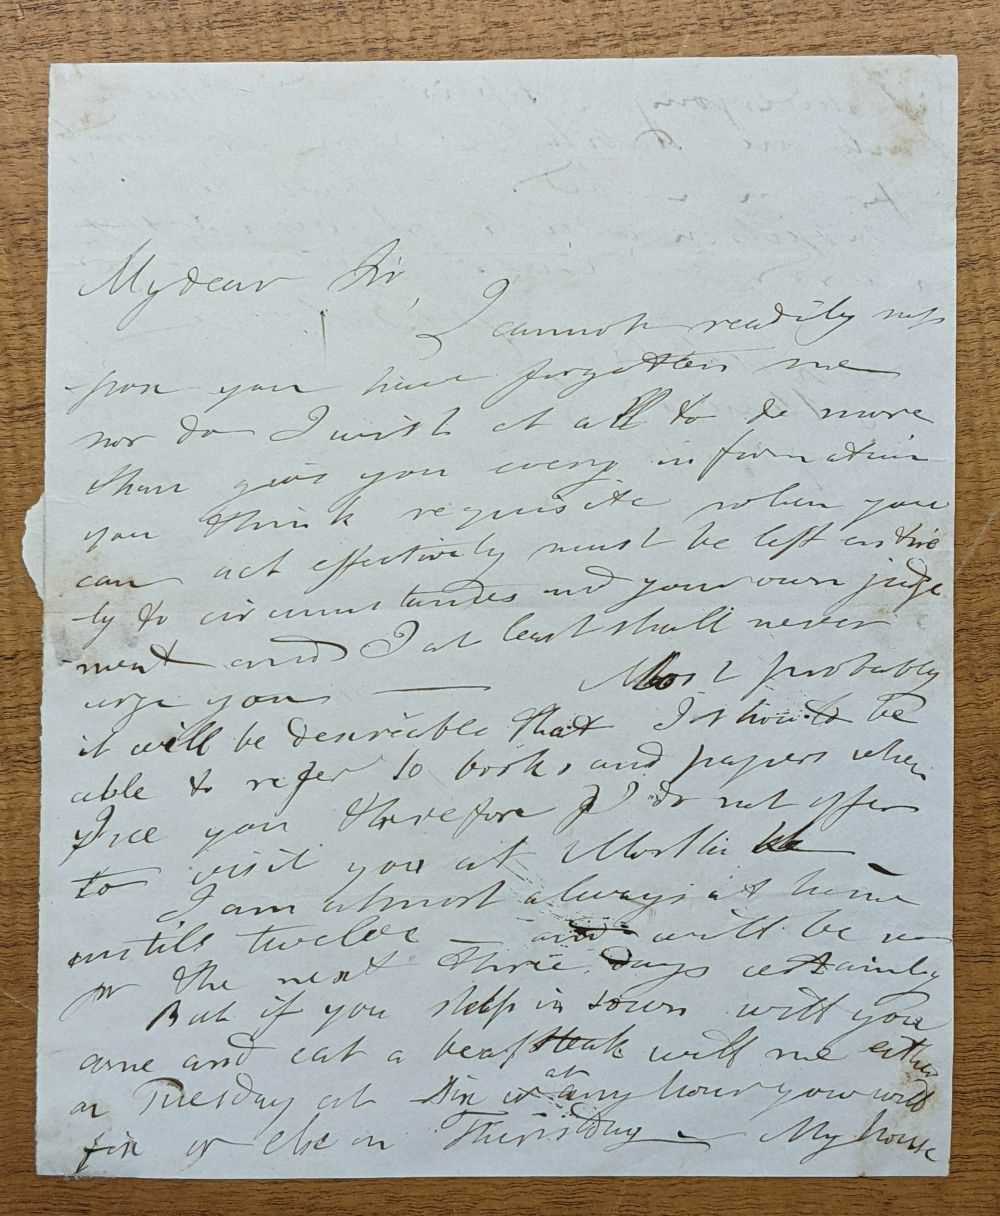 My dear Sir,
I cannot readily sup
pose you have forgotten me
nor do I wish at all to do more
than give you every information
you think requisite when you
can act effectively must be left entire
-ly to circumstances and your own judge
-ment and I at least shall never
urge you — Most probably
it will be desireable that I should be
able to refer to books and papers when
I see you therefore I do not offer
to visit you at Mortlake
I am almost always at home
untill twelve — and will be so
for the next three days certainly
But if you sleep in town will you
come and eat a beafsteak with me either
on Tuesday at Six or at any hour you will
fix or else on Thursday — My house